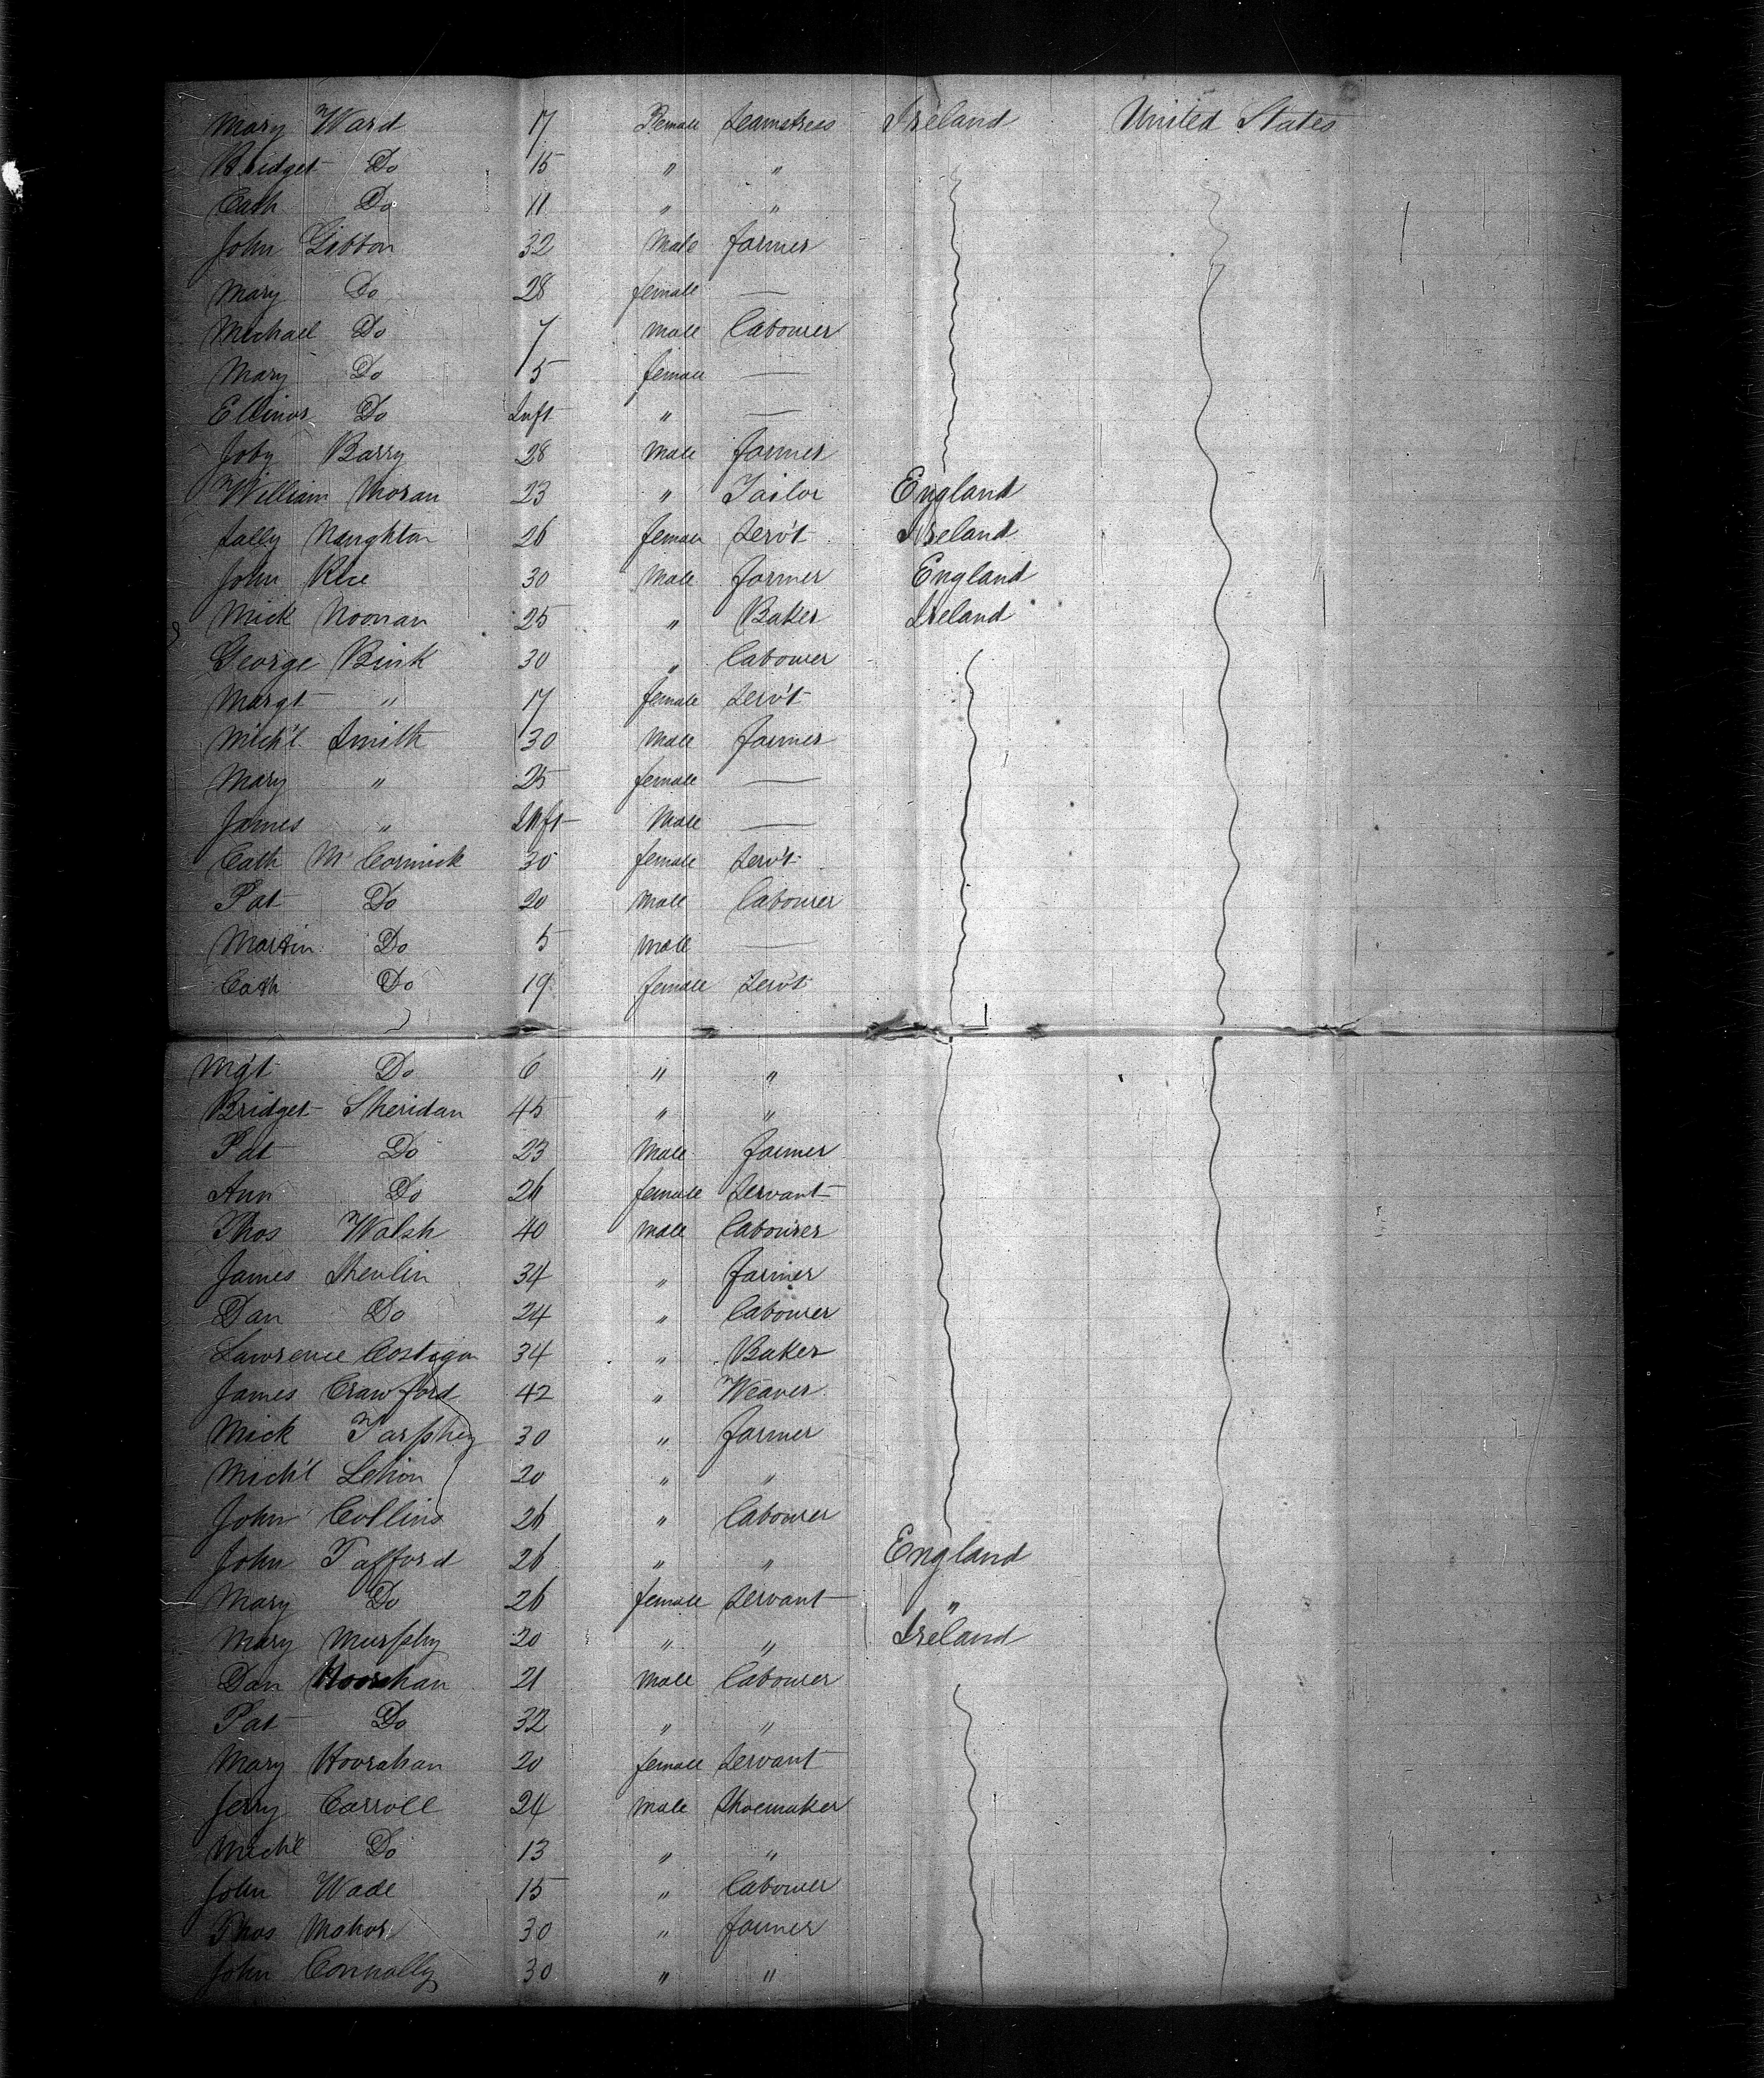 Mary Ward 17 Female Seamstress Ireland United States
Bridget Do 15 " "
Cath Do 11 " "
John Gibbon 32 Male farmer
Mary Do 28 female —
Michael Do 7 male labourer
Mary Do 5 female —
Ellinor Do Inft " —
Joby Barry 28 male farmer
William Moran 23 " Tailor England
Sally Naughton 26 female Serv't Ireland
John Rice 30 Male farmer England
Mick Noonan 25 " Baker Ireland
George Bink 30 " labourer
Margt " 17 female Serv't
Mich'l Smith 30 Male farmer
Mary " 25 female —
James " Inft Male —
Cath McCormick 30 female Serv't
Pat Do 20 male labourer
Martin Do 5 male —
Cath Do 19 female Serv't
Mgt Do 6 " "
Bridget Sheridan 45 " "
Pat Do 23 male farmer
Ann Do 26 female Servant
Thos Walsh 40 male labourer
James Shevlin 34 " farmer
Dan Do 24 " labourer
Lawrence Costigan 34 " Baker
James Crawford 42 " Weaver
Mick Tarphey 30 " farmer
Mich'l Lehon 20 " "
John Collins 26 " labourer
John Tafford 26 " " England
Mary Do 26 female Servant "
Mary Murphy 20 " " Ireland
Dan Hoorahan 21 male labourer
Pat Do 32 " "
Mary Hoorahan 20 female Servant
Jerry Carroll 24 male Shoemaker
Mich'l Do 13 " "
John Wade 15 " labourer
Thos Mahor 30 " farmer
John Connolly 30 " "